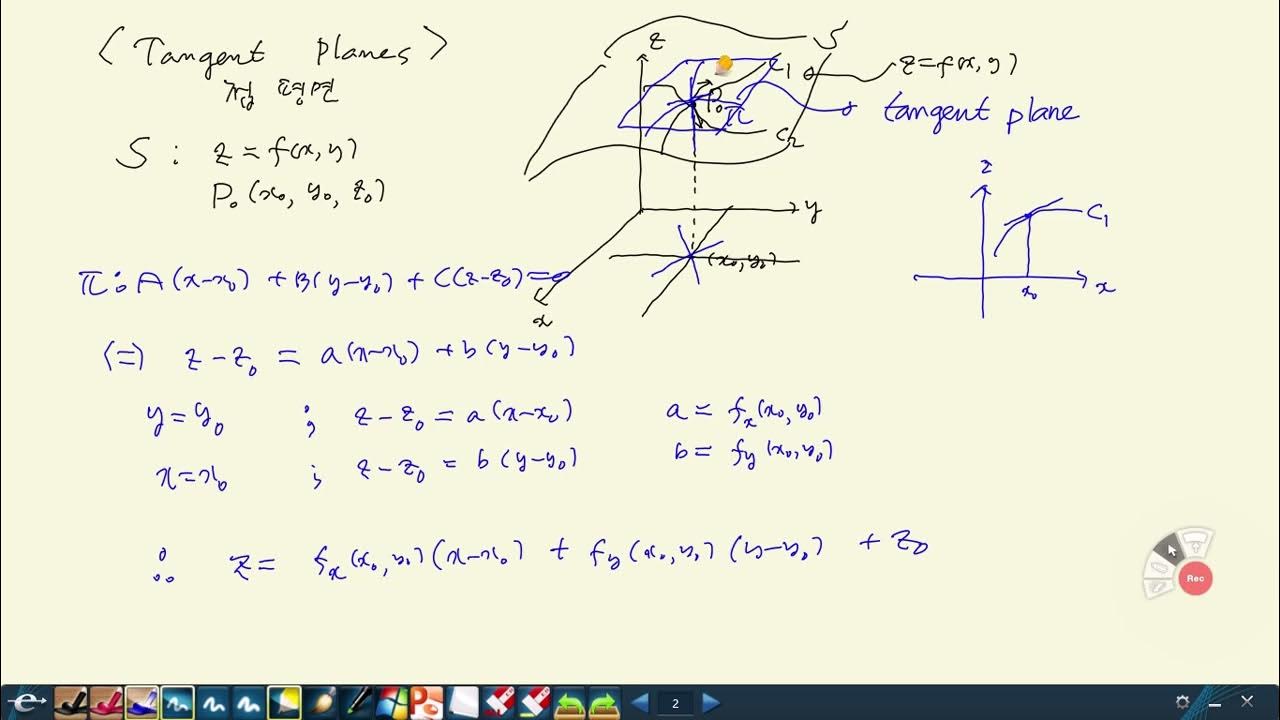 < Tangent planes >
접평면
S : z = f(x, y)
P₀(x₀, y₀, z₀)
π : A(x-x₀) + B(y-y₀) + C(z-z₀) = 0
(=) z - z₀ = a(x-x₀) + b(y-y₀)
y = y₀ ; z - z₀ = a(x-x₀) a = fₓ(x₀, y₀)
x = x₀ ; z - z₀ = b(y-y₀) b = f_y(x₀, y₀)
∴ z = fₓ(x₀, y₀)(x-x₀) + f_y(x₀, y₀)(y-y₀) + z₀
z
S
C₁
z = f(x, y)
P₀
π
tangent plane
C₂
y
(x₀, y₀)
x
z
C₁
x₀
x
Rec
2